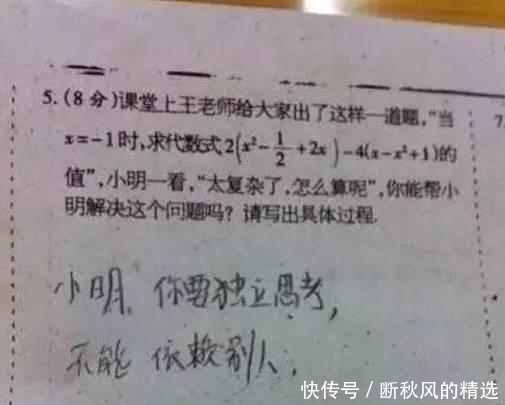 5.(8分)课堂上王老师给大家出了这样一道题,"当
7.
x=-1时,求代数式2(x²-1/2+2x)-4(x-x²+1)的
值",小明一看,"太复杂了,怎么算呢",你能帮小
明解决这个问题吗?请写出具体过程.
小明,你要独立思考,
不能依赖别人.
快传号/断秋风的精选